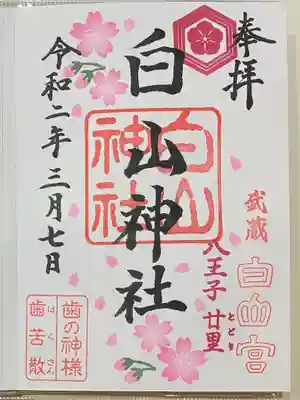 奉拝
武蔵
白山宮
八王子 廿里
とどり
白山神社
白山
神社
令和二年三月七日
歯の神様
はくさん
歯苦散